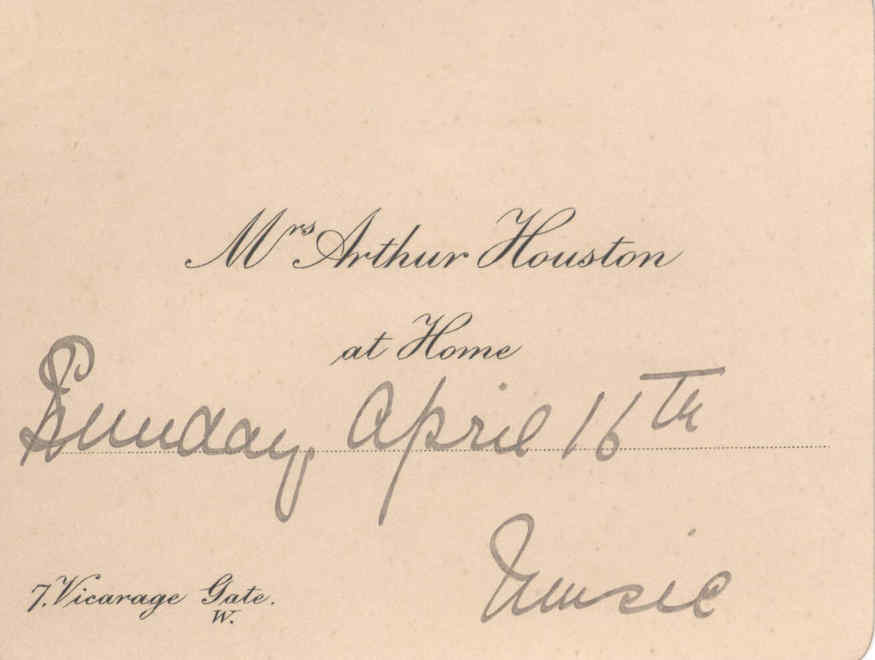 Mrs Arthur Houston
at Home
Sunday, April 16th
Music
7, Vicarage Gate.
W.